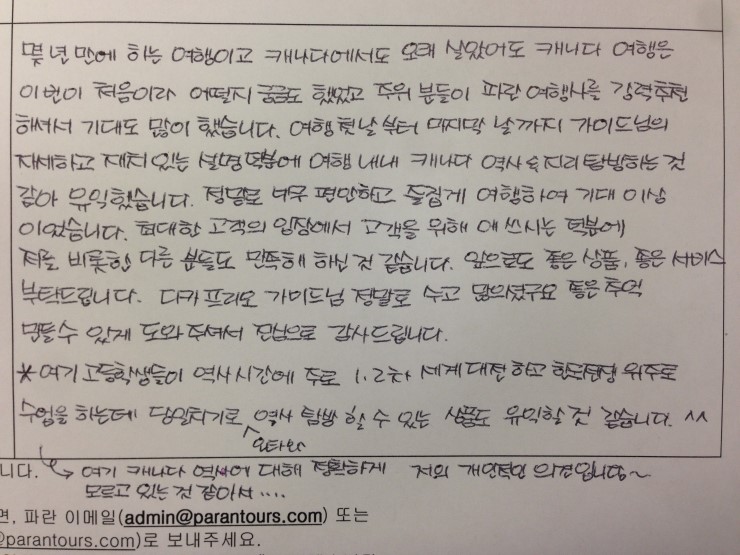 몇 년 만에 하는 여행이고 캐나다에서도 오래 살았어도 캐나다 여행은
이번이 처음이라 어떨지 궁금도 했었고 주위 분들이 파란 여행사를 강력추천
하셔서 기대도 많이 했습니다. 여행 첫날 부터 마지막 날까지 가이드님의
자세하고 재치 있는 설명 덕분에 여행 내내 캐나다 역사 & 지리 탐방하는 것
같아 유익했습니다. 정말로 너무 편안하고 즐겁게 여행하여 기대 이상
이었습니다. 최대한 고객의 입장에서 고객을 위해 애 쓰시는 덕분에
저를 비롯한 다른 분들도 만족해 하신 것 같습니다. 앞으로도 좋은 상품, 좋은 서비스
부탁드립니다. 디카프리오 가이드님 정말로 수고 많으셨구요 좋은 추억
만들수 있게 도와주셔서 진심으로 감사드립니다.
* 여기 고등학생들이 역사시간에 주로 1,2차 세계대전하고 한국전쟁 위주로
수업을 하는데 당일치기로 오타와 역사 탐방 할 수 있는 상품도 유익할 것 같습니다. ^^
니다. 여기 캐나다 역사에 대해 정확하게 저의 개인적인 의견입니다~
모르고 있는 것 같아서 ....
면, 파란 이메일(admin@parantours.com) 또는
@parantours.com)로 보내주세요.